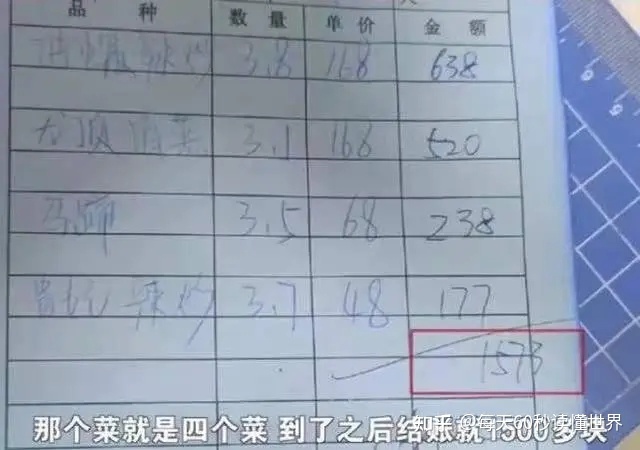 品种 数量 单价 金额
辣炒 3.8 168 638
3.1 168 520
3.5 68 238
辣炒 3.7 48 177
1573
知乎 @每天60秒读懂世界
那个菜就是四个菜 到了之后结账就1500多块